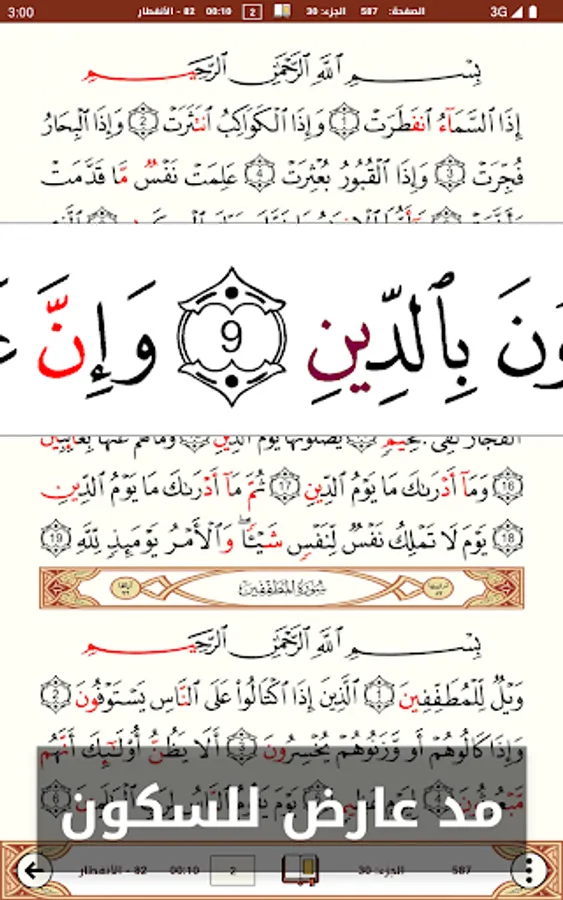 3:00 82 - الأنفطار 00:10 2 الجزء: 30 الصفحة: 587 3G
بِسْمِ ٱللَّهِ ٱلرَّحْمَٰنِ ٱلرَّحِيمِ
إِذَا ٱلسَّمَآءُ ٱنفَطَرَتْ 1 وَإِذَا ٱلْكَوَاكِبُ ٱنتَثَرَتْ 2 وَإِذَا ٱلْبِحَارُ
فُجِّرَتْ 3 وَإِذَا ٱلْقُبُورُ بُعْثِرَتْ 4 عَلِمَتْ نَفْسٌ مَّا قَدَّمَتْ
ونَ بِٱلدِّينِ 9 وَإِنَّ
يَصْلَوْنَهَا يَوْمَ ٱلدِّينِ
16 وَمَآ أَدْرَىٰكَ مَا يَوْمُ ٱلدِّينِ 17 ثُمَّ مَآ أَدْرَىٰكَ مَا يَوْمُ ٱلدِّينِ
18 يَوْمَ لَا تَمْلِكُ نَفْسٌ لِّنَفْسٍ شَيْـًٔا ۖ وَٱلْأَمْرُ يَوْمَئِذٍ لِّلَّهِ 19
سُورَةُ المُطَفِّفِينَ
بِسْمِ ٱللَّهِ ٱلرَّحْمَٰنِ ٱلرَّحِيمِ
وَيْلٌ لِّلْمُطَفِّفِينَ 1 ٱلَّذِينَ إِذَا ٱكْتَالُوا۟ عَلَى ٱلنَّاسِ يَسْتَوْفُونَ 2
وَإِذَا كَالُوهُمْ أَو وَّزَنُوهُمْ يُخْسِرُونَ 3 أَلَا يَظُنُّ أُو۟لَٰٓئِكَ أَنَّهُم
مد عارض للسكون
82 - الأنفطار 00:10 2 الجزء: 30 587